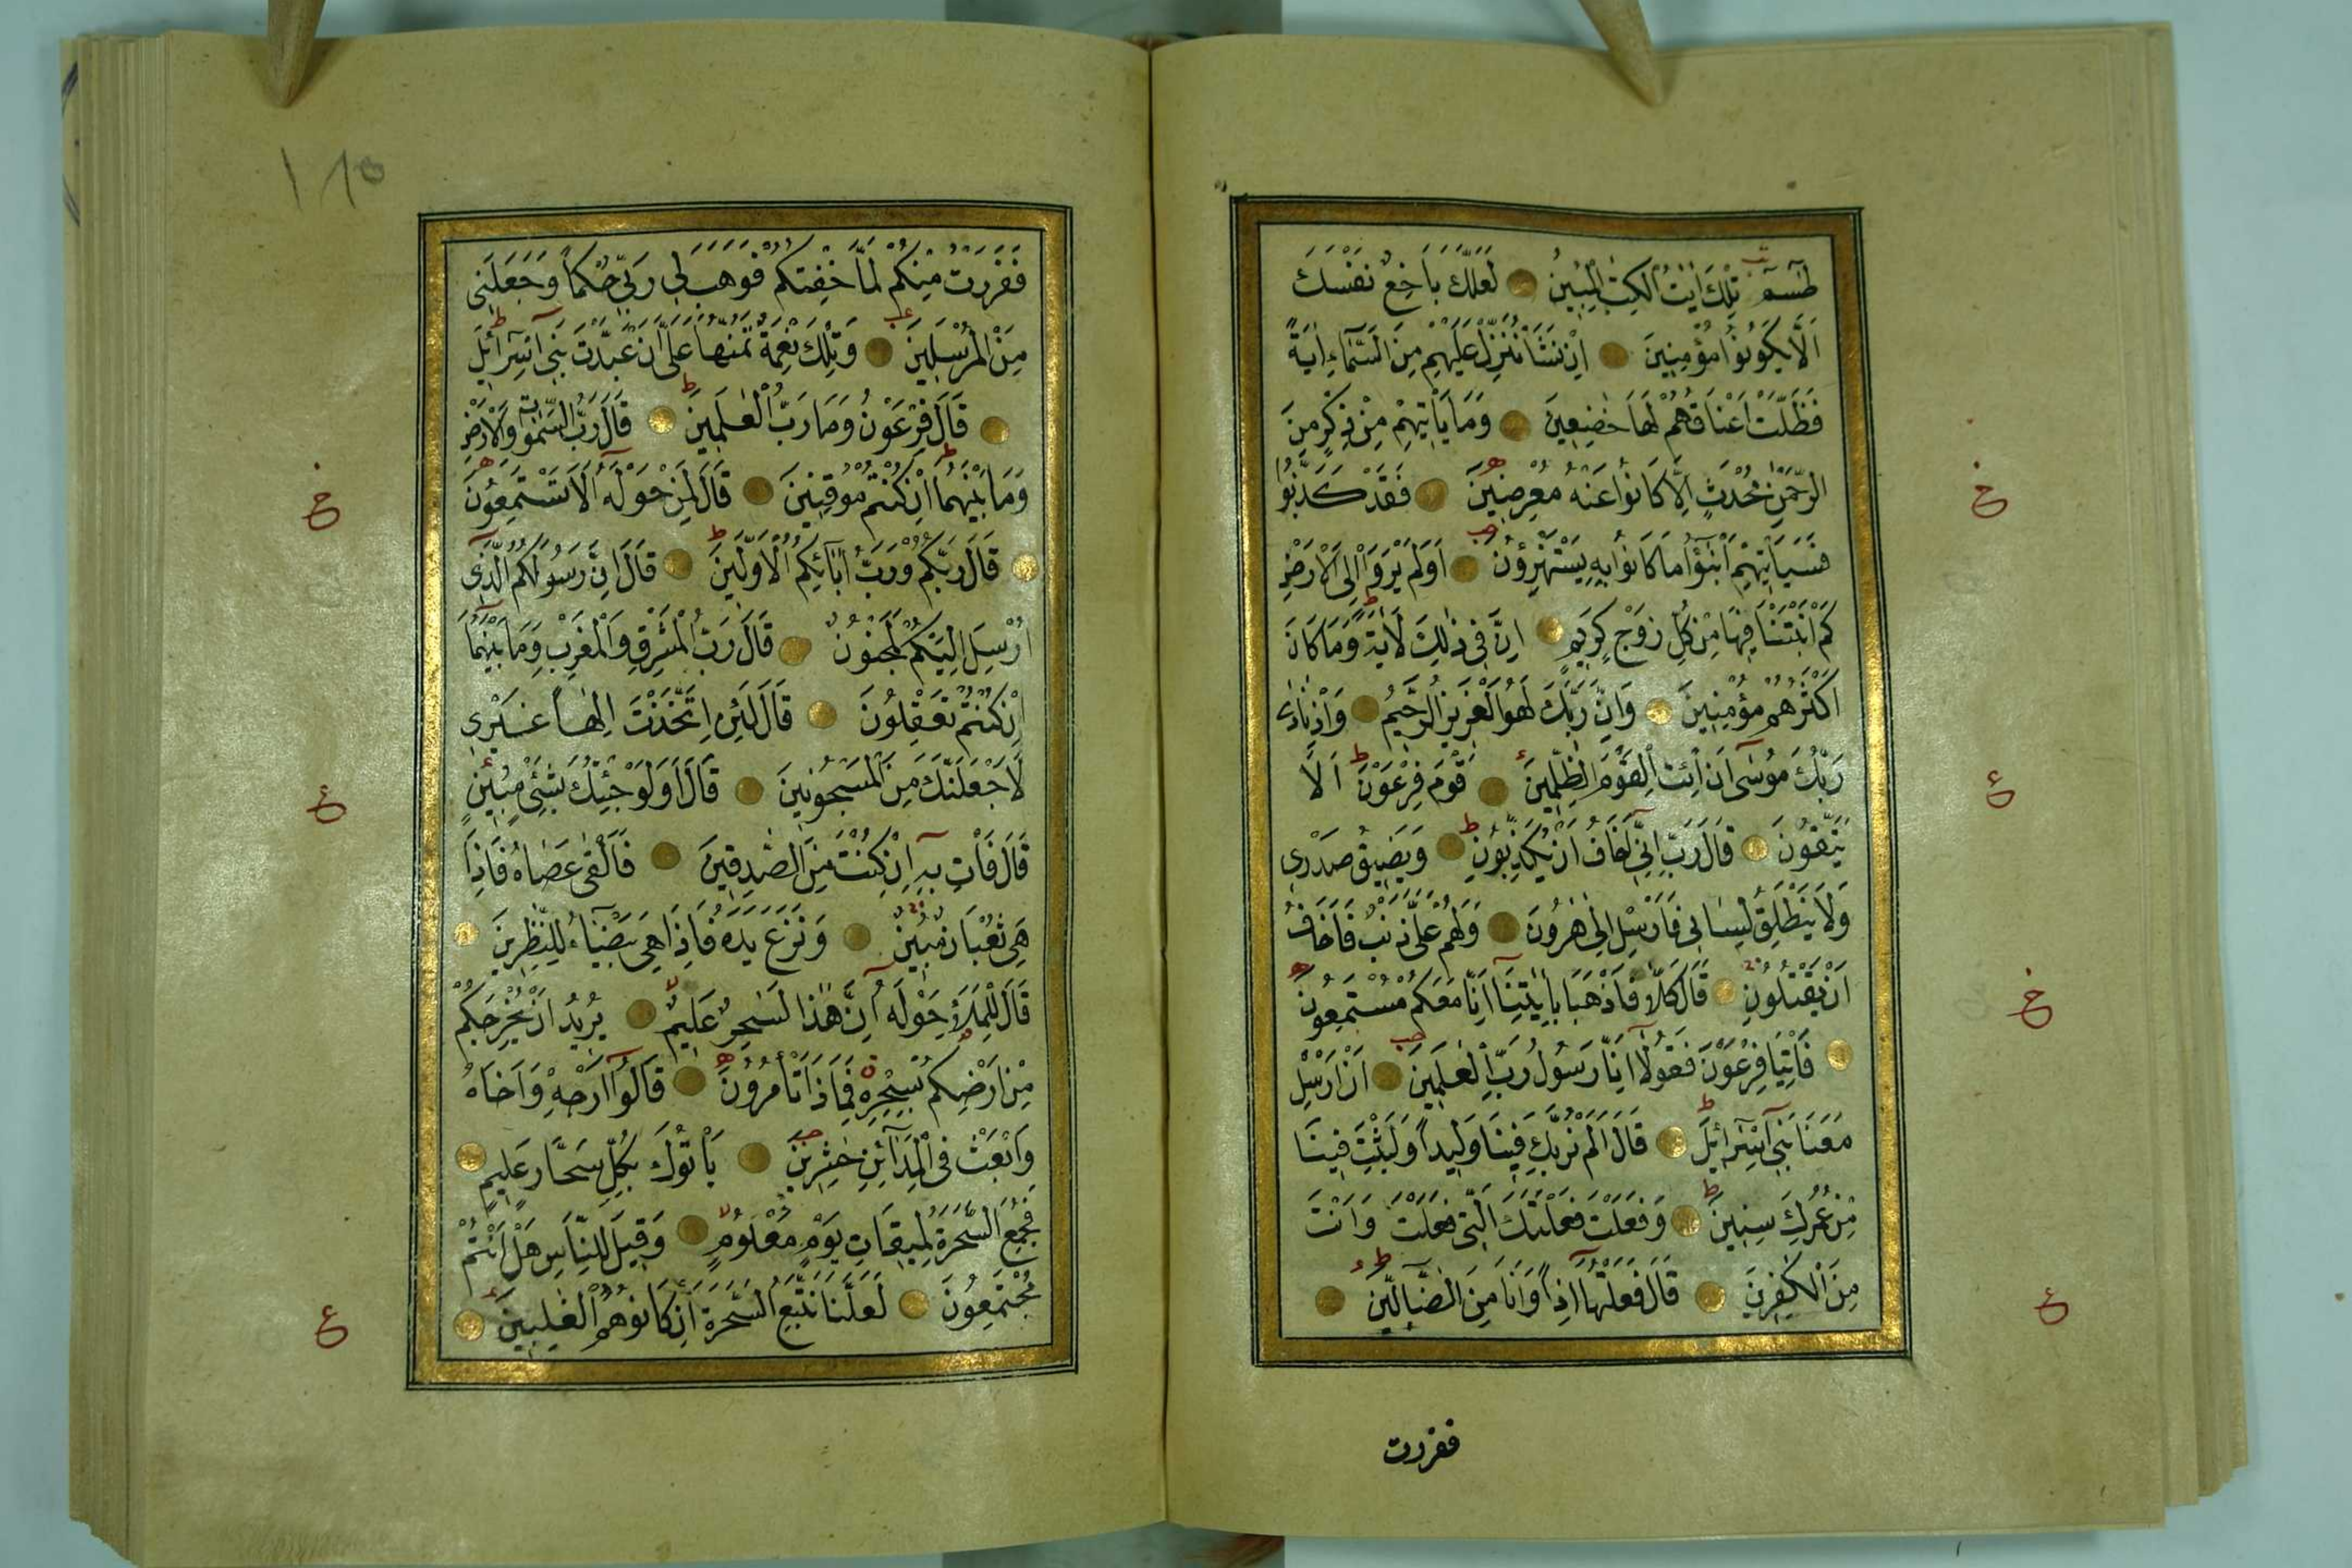 طسم تلك ايت الكتب المبين لعلك باخع نفسك
الا يكونوا مؤمنين ان نشا ننزل عليهم من السماء اية
فظلت اعناقهم لها خضعين وما ياتيهم من ذكر من
الرحمن محدث الا كانوا عنه معرضين فقد كذبوا
فسياتيهم انبؤا ما كانوا به يستهزؤن اولم يروا الى الارض
كم انبتنا فيها من كل زوج كريم ان في ذلك لاية وما كان
اكثرهم مؤمنين وان ربك لهو العزيز الرحيم واذ نادى
ربك موسى ان ائت القوم الظلمين قوم فرعون الا
يتقون قال رب اني اخاف ان يكذبون ويضيق صدري
ولا ينطلق لساني فارسل الى هرون ولهم علي ذنب فاخاف
ان يقتلون قال كلا فاذهبا بايتنا انا معكم مستمعون
فاتيا فرعون فقولا انا رسول رب العلمين ان ارسل
معنا بني اسرائيل قال الم نربك فينا وليدا ولبثت فينا
من عمرك سنين وفعلت فعلتك التي فعلت وانت
من الكفرين قال فعلتها اذا وانا من الضالين
ففررت
ففررت منكم لما خفتكم فوهب لي ربي حكما وجعلني
من المرسلين وتلك نعمة تمنها علي ان عبدت بني اسرائيل
قال فرعون وما رب العلمين قال رب السموات والارض
وما بينهما ان كنتم موقنين قال لمن حوله الا تستمعون
قال ربكم ورب ابائكم الاولين قال ان رسولكم الذي
ارسل اليكم لمجنون قال رب المشرق والمغرب وما بينهما
ان كنتم تعقلون قال لئن اتخذت الها غيري
لاجعلنك من المسجونين قال اولو جئتك بشيء مبين
قال فات به ان كنت من الصدقين فالقى عصاه فاذا
هي ثعبان مبين ونزع يده فاذا هي بيضاء للنظرين
قال للملا حوله ان هذا لسحر عليم يريد ان يخرجكم
من ارضكم بسحره فماذا تامرون قالوا ارجه واخاه
وابعث في المدائن حشرين ياتوك بكل سحار عليم
فجمع السحرة لميقات يوم معلوم وقيل للناس هل انتم
مجتمعون لعلنا نتبع السحرة ان كانوا هم الغلبين